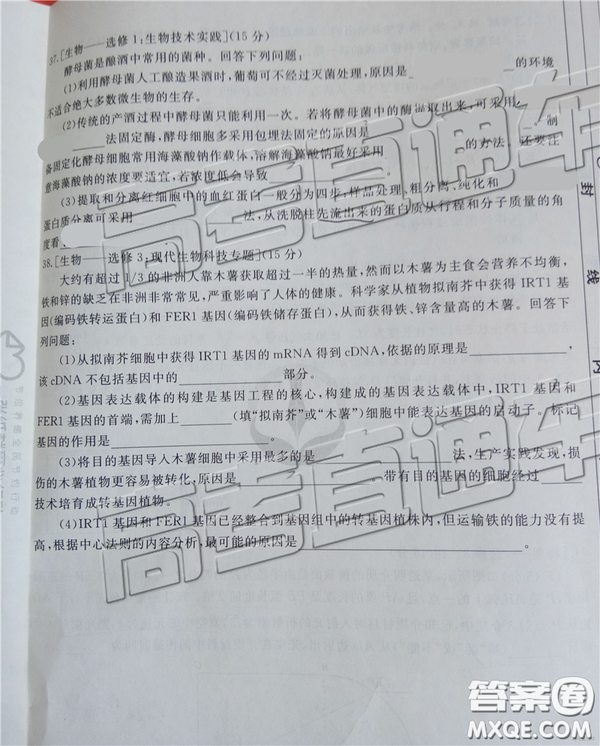 37.[生物——选修1:生物技术实践](15分)
酵母菌是酿酒中常用的菌种。回答下列问题:
(1)利用酵母菌人工酿造果酒时,葡萄可不经过灭菌处理,原因是 的环境
不适合绝大多数微生物的生存。
(2)传统的产酒过程中酵母菌只能利用一次。若将酵母菌中的酶提取出来,可采用
法固定酶,酵母细胞多采用包埋法固定的原因是
备固定化酵母细胞常用海藻酸钠作载体,溶解海藻酸钠最好采用 的方法。还要注
意海藻酸钠的浓度要适宜,若浓度低会导致
(3)提取和分离红细胞中的血红蛋白一般分为四步:样品处理、粗分离、纯化和
蛋白质分离可采用 法,从洗脱柱先流出来的蛋白质从行程和分子质量的角
度看
38.[生物——选修3:现代生物科技专题](15分)
大约有超过1/3的非洲人靠木薯获取超过一半的热量,然而以木薯为主食会营养不均衡,
铁和锌的缺乏在非洲非常常见,严重影响了人体的健康。科学家从植物拟南芥中获得IRT1基
因(编码铁转运蛋白)和FER1基因(编码铁储存蛋白),从而获得铁、锌含量高的木薯。回答下
列问题:
(1)从拟南芥细胞中获得IRT1基因的mRNA得到cDNA,依据的原理是
该cDNA不包括基因中的 部分。
(2)基因表达载体的构建是基因工程的核心,构建成的基因表达载体中,IRT1基因和
FER1基因的首端,需加上 (填“拟南芥”或“木薯”)细胞中能表达基因的启动子。标记
基因的作用是 。
(3)将目的基因导入木薯细胞中采用最多的是 法,生产实践发现,损
伤的木薯植物更容易被转化,原因是 。带有目的基因的细胞经过
技术培育成转基因植物。
(4)IRT1基因和FER1基因已经整合到基因组中的转基因植株内,但运输铁的能力没有提
高,根据中心法则的内容分析,最可能的原因是 。
封
线
内
高考直通车
高考直通车
高考直通车
答案圈
MXQE.COM